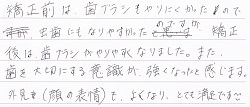 矯正前は、歯ブラシもやりにくかったので
虫歯にもなりやすかったのですが、矯正
後は、歯ブラシがやりやすくなりました。また、
歯を大切にする意識が、強くなったと感じます。
外見も(顔の表情)も、よくなり、とても満足です〜